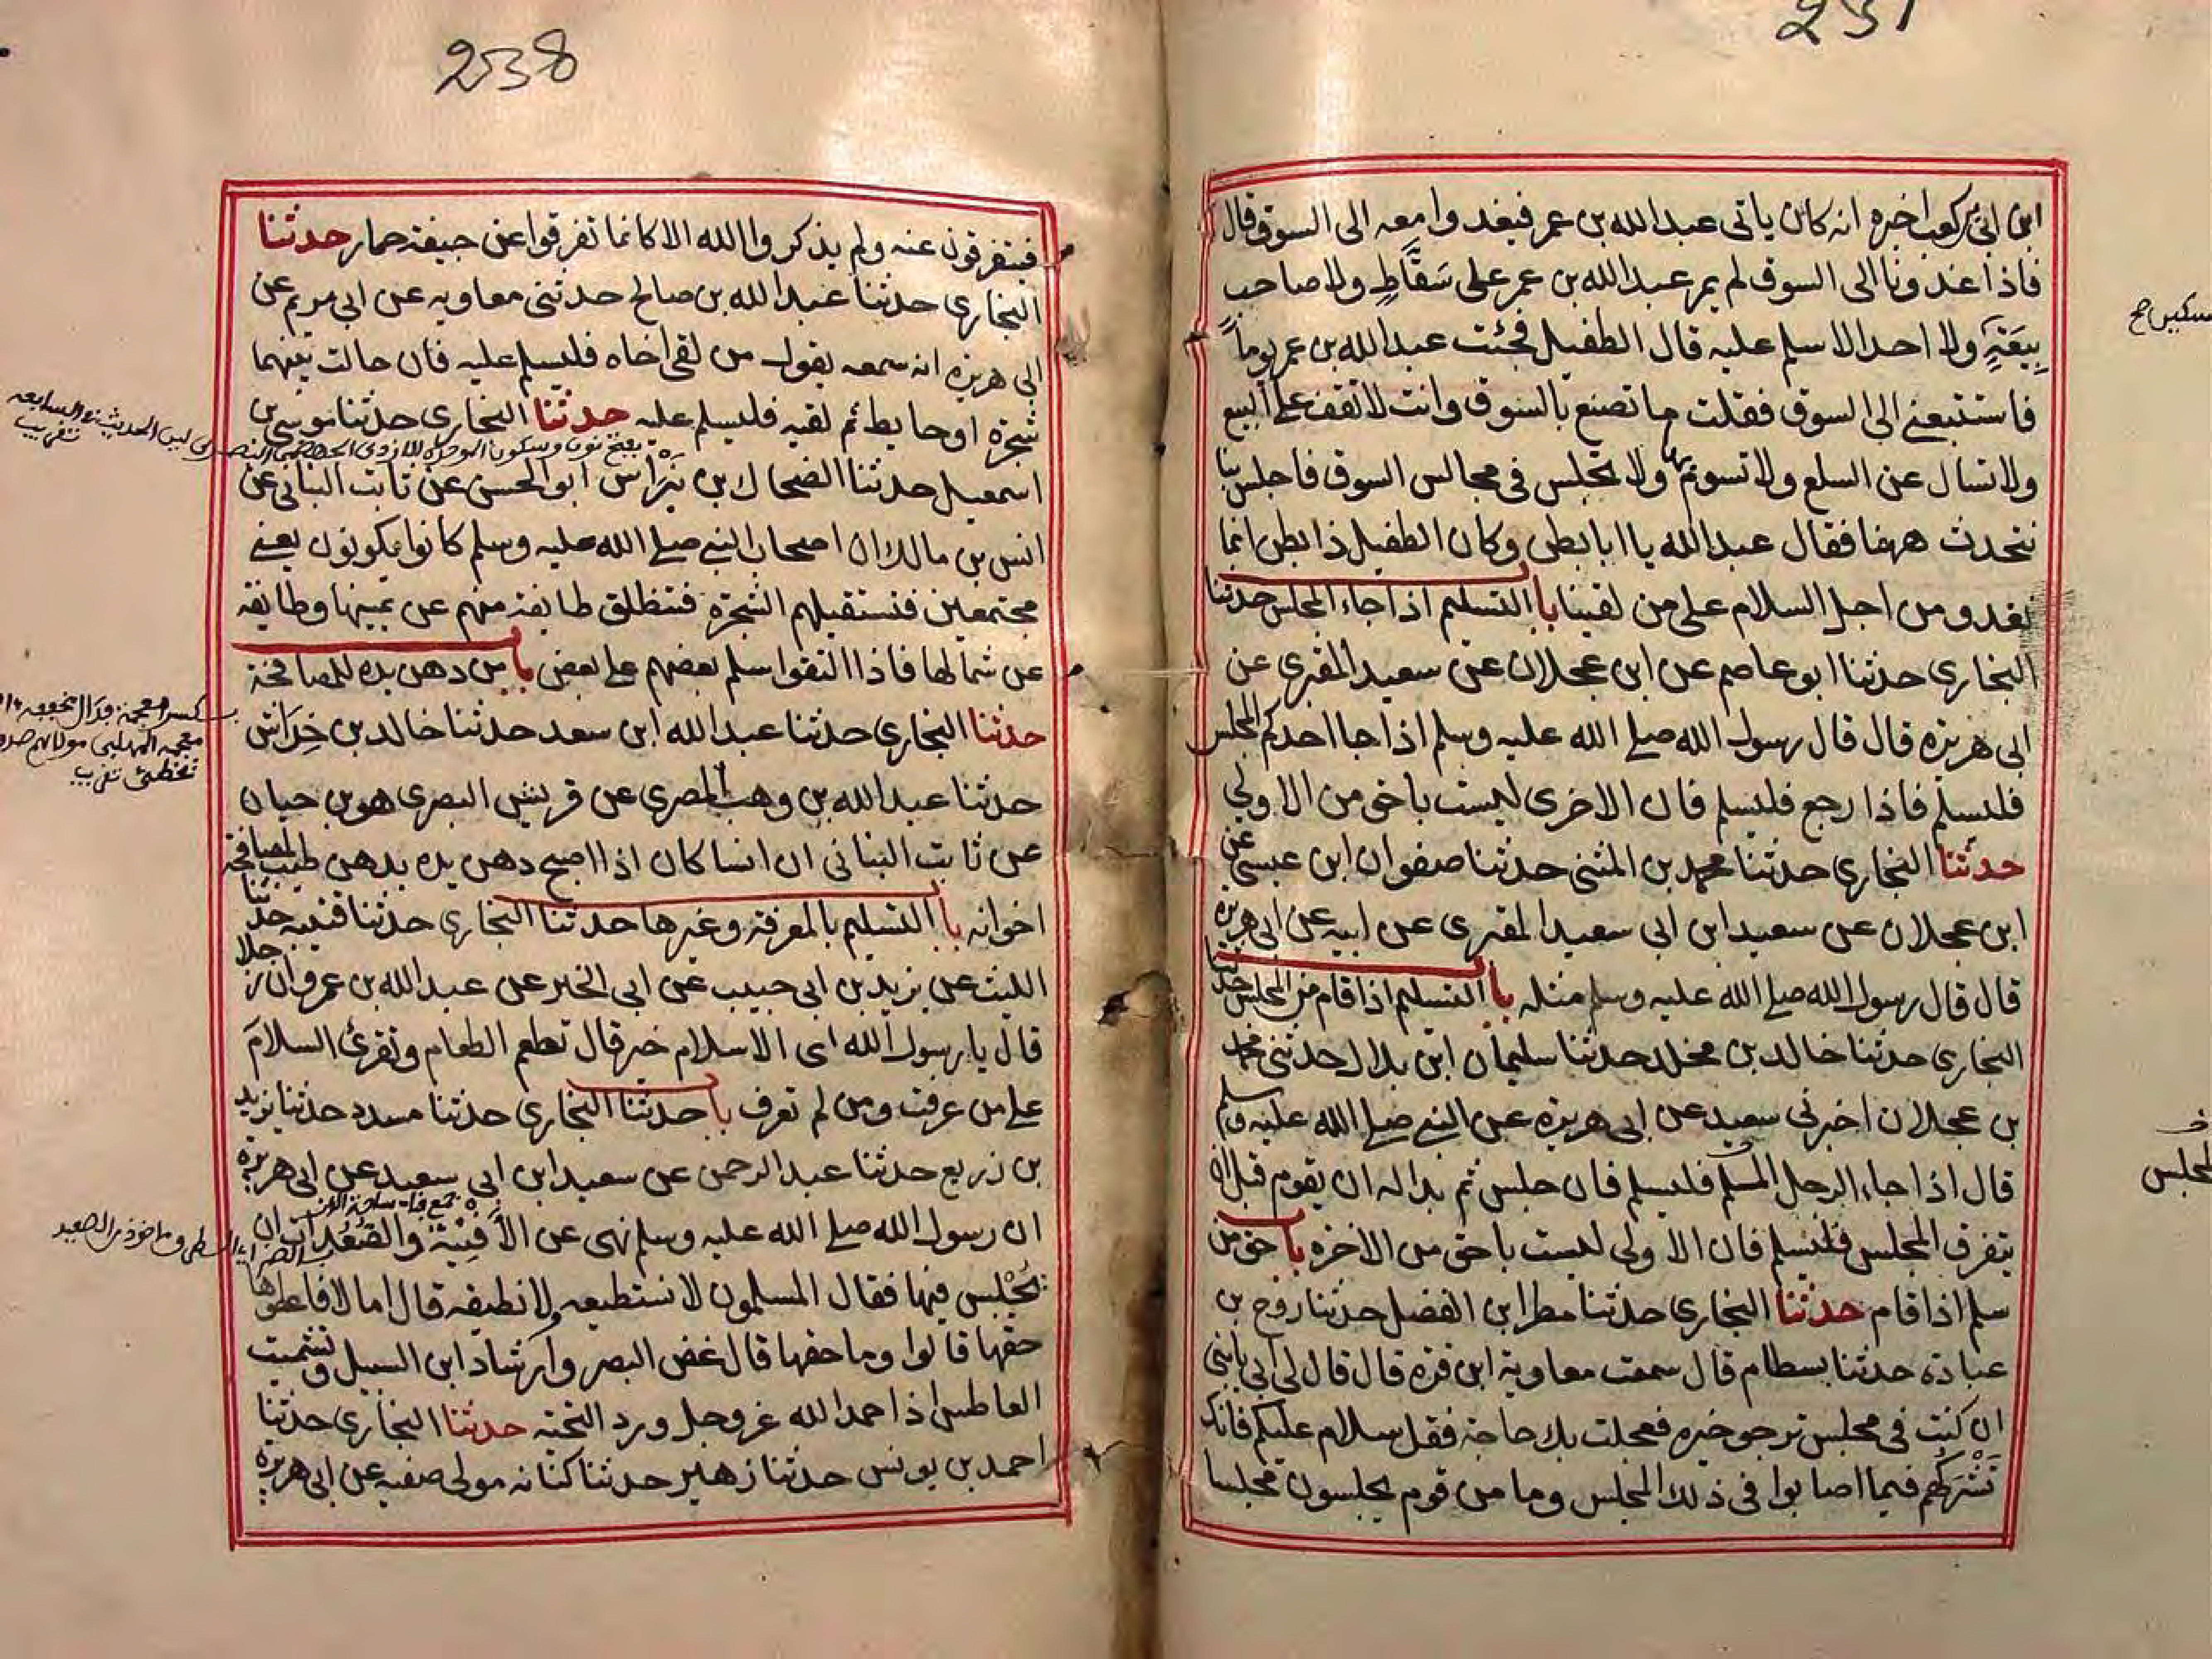 237
ابن ابي بن كعب اخبره انه كان ياتى عبد الله بن عمر فيغدوا معه الى السوق قال
فاذا غدونا الى السوق لم يمر عبد الله بن عمر على سَقَّاطٍ ولا صاحب
بِيعَةٍ ولا احد الا سلم عليه قال الطفيل فجئت عبد الله بن عمر يوماً
فاستتبعنى الى السوق فقلت ما تصنع بالسوق وانت لا تقف على البيع
ولا تسال عن السلع ولا تسوم بها ولا تجلس فى مجالس السوق فاجلس بنا
نتحدث ههنا فقال عبد الله يا ابا بطن وكان الطفيل ذا بطن انما
نغدو من اجل السلام على من لقينا باب التسليم اذا جاء المجلس حدثنا
البخاري حدثنا ابو عاصم عن ابن عجلان عن سعيد المقبري عن
ابى هريرة قال قال رسول الله صلى الله عليه وسلم اذا جا احدكم المجلس
فليسلم فاذا رجع فليسلم فان الاخرى ليست باحق من الاولى
حدثنا البخاري حدثنا محمد بن المثنى حدثنا صفوان ابن عيسى عن
ابن عجلان عن سعيد ابن ابى سعيد المقبري عن ابيه عن ابى هريرة
قال قال رسول الله صلى الله عليه وسلم مثله باب التسليم اذا قام من المجلس حدثنا
البخاري حدثنا خالد بن مخلد حدثنا سليمان ابن بلال حدثنى محمد
بن عجلان اخبرنى سعيد عن ابى هريرة عن النبى صلى الله عليه وسلم
قال اذا جاء الرجل المسلم فليسلم فان جلس ثم بدا له ان يقوم قبل ان
يتفرق المجلس فليسلم فان الاولى ليست باحق من الاخرة باب حق من
سلم اذا قام حدثنا البخاري حدثنا مطر ابن الفضل حدثنا روح بن
عبادة حدثنا بسطام قال سمعت معاوية ابن قرة قال قال لى ابى يا بنى
ان كنت فى مجلس ترجو خيره فعجلت بك حاجة فقل سلام عليكم فانك
تَشْرَكُهم فيما اصابوا فى ذلك المجلس وما من قوم يجلسون مجلسا
المجلس
238
فيتفرقون عنه ولم يذكروا الله الا كانما تفرقوا عن جيفة حمار حدثنا
البخاري حدثنا عبد الله بن صالح حدثنى معاوية عن ابى مريم عن
ابى هريرة انه سمعه يقول من لقى اخاه فليسلم عليه فان حالت بينهما
شجرة او حايط ثم لقيه فليسلم عليه حدثنا البخاري حدثنا موسى بن
اسمعيل حدثنا الضحاك بن نِبْرَاس ابو الحسن عن ثابت البنانى عن
انس بن مالك ان اصحاب النبى صلى الله عليه وسلم كانوا يكونون يعنى
مجتمعين فتستقبلهم الشجرة فتنطلق طايفة منهم عن يمينها وطايفة
عن شمالها فاذا التقوا سلم بعضهم على بعض باب من دهن يده للمصافحة
حدثنا البخاري حدثنا عبد الله ابن سعد حدثنا خالد بن خِدَاش
حدثنا عبد الله بن وهب المصري عن قريش البصرى هو بن حيان
عن ثابت البنانى ان انسا كان اذا اصبح دهن يده بدهن طيب لمصافحة
اخوانه باب التسليم بالمعرفة وغيرها حدثنا البخاري حدثنا قتيبة حدثنا
الليث عن يزيد بن ابى حبيب عن ابى الخير عن عبد الله بن عمرو ان رجلا
قال يا رسول الله اى الاسلام خير قال تطعم الطعام وتقرئ السلام
على من عرفت ومن لم تعرف باب حدثنا البخاري حدثنا مسدد حدثنا يزيد
بن زريع حدثنا عبد الرحمن عن سعيد ابن ابى سعيد عن ابى هريرة
ان رسول الله صلى الله عليه وسلم نهى عن الأفنِيَة والصُّعُدات ان
يُجْلس فيها فقال المسلمون لا نستطيعه ولا نطيقه قال اما لا فاعطوها
حقها قالوا وما حقها قال غض البصر وارشاد ابن السبيل وتشميت
العاطس اذا حمد الله عز وجل ورد التحية حدثنا البخاري حدثنا
احمد بن يونس حدثنا زهير حدثنا كنانه مولى صفيه عن ابى هريرة